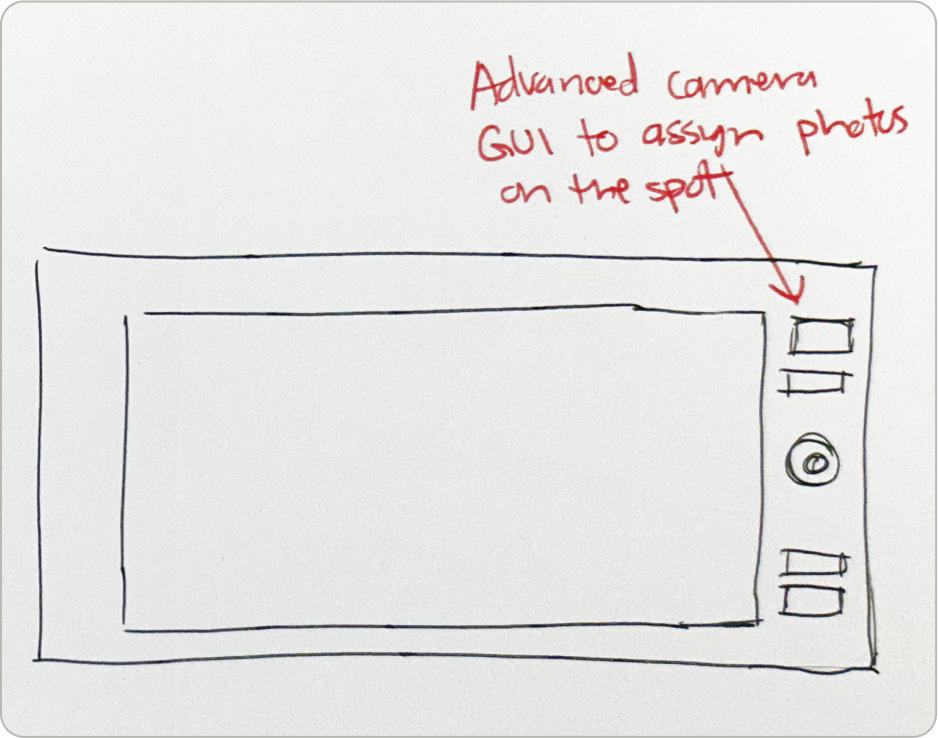 Advanced camera
GUI to assign photos
on the spot